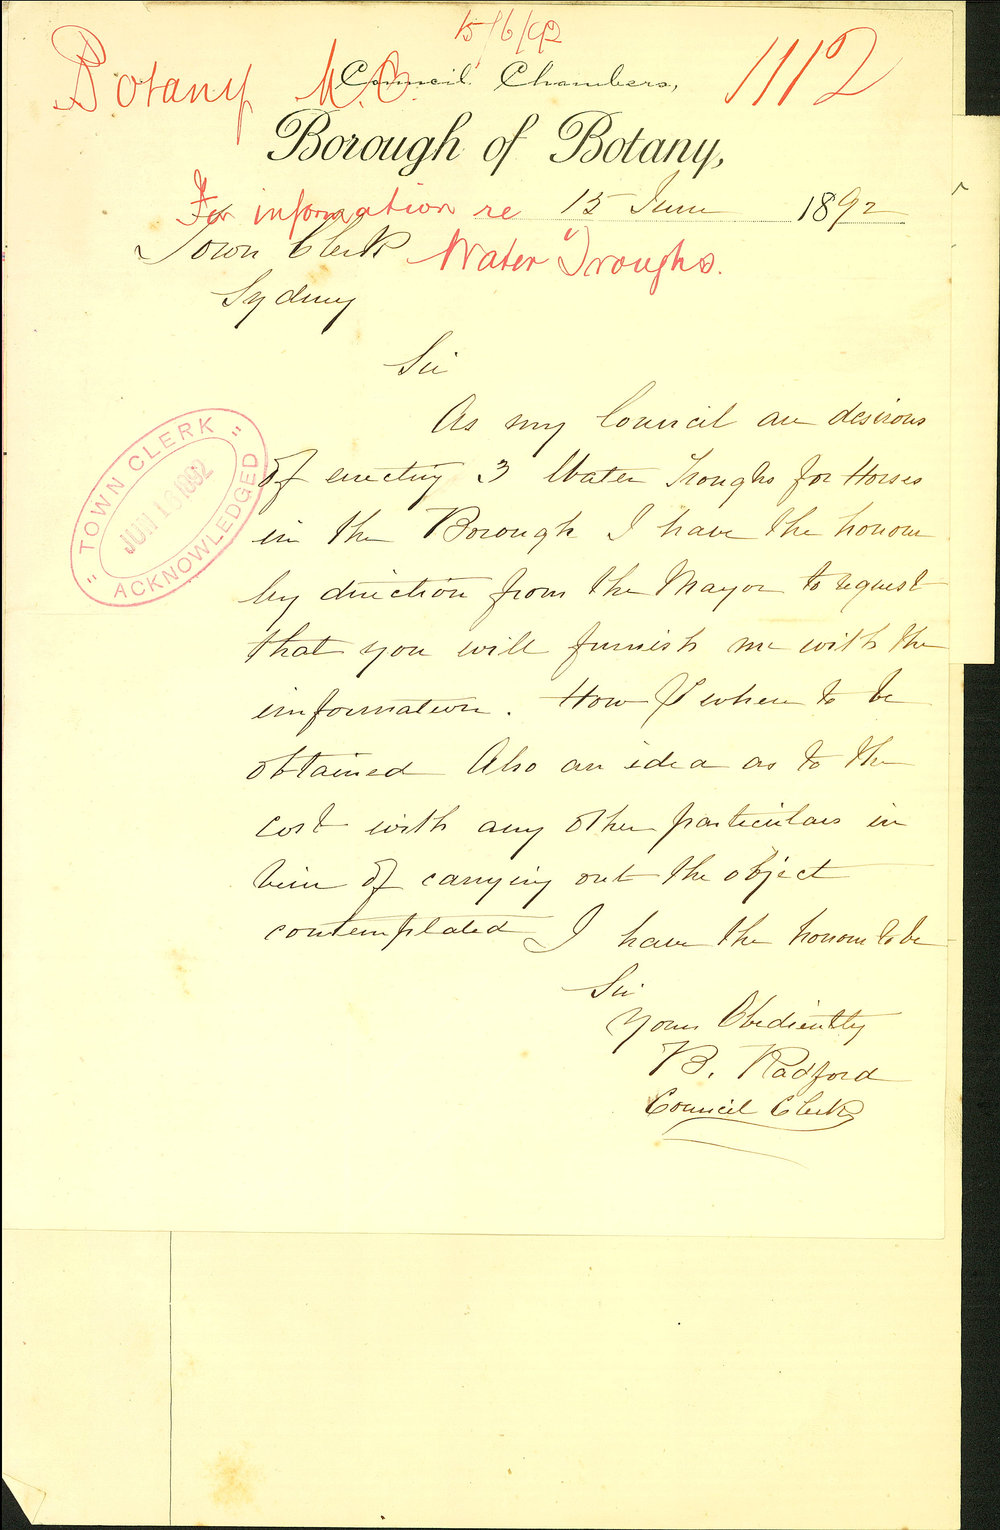 15/6/92
Botany M.C. 1112
Council Chambers,
Borough of Botany,
For information re 15 June 1892
Town Clerk Water Troughs.
Sydney
Sir
As my Council are desirous
of erecting 3 Water Troughs for Horses
in the Borough I have the honour
by direction from the Mayor to request
that you will furnish me with the
information. How & where to be
obtained Also an idea as to the
cost with any other particulars in
view of carrying out the object
contemplated I have the honour to be
Sir
Yours Obediently
B. Radford
Council Clerk
"TOWN CLERK"
JUN 16 1892
ACKNOWLEDGED